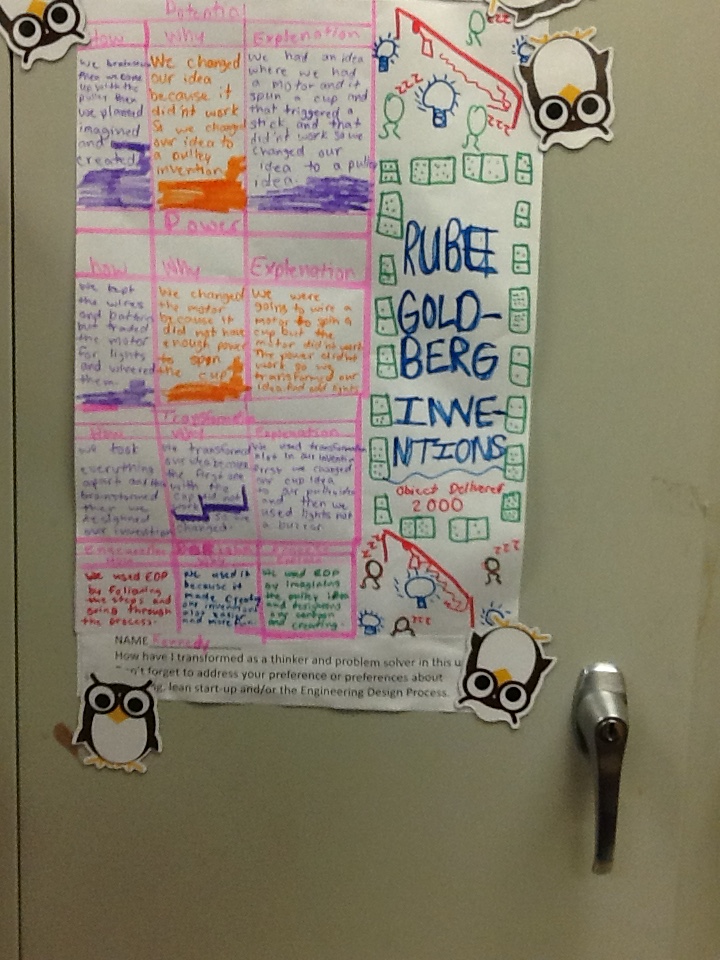 Potential
How
Why
Explenation
We
then we came
up with the
pulley then
we planned
imagined
and
created
We changed
our idea
because it
did'nt work
So we changed
our idea to
a pulley
invention.
We had an idea
where we had
a motor and it
spun a cup and
that triggered a
stick and that
did'nt work so we
changed our
idea to a pulley
idea.
Power
how
Why
Explenation
We kept
the wires
and battery
but traded
the motor
for lights
and wivered
them.
We changed
the motor
because it
did not have
enough power
to span
the cup
We were
going to wire a
motor to spin a
cup but the
motor did not work
The power did not
work so we
transformed our
idea
How
Why
Explenation
we took
everything
apart and
brainstormed
then we
our invention
We transformed
our idea because
the first one
with the
cup did not
work
changed.
We used
also in our
first we changed
our cup idea
to
and then we
used lights not
a buzzer.
We used EDP
by following
the steps and
going through
the process.
We used it
because it
made
our invention
also easier
and more
We used EDP
by imagining
the pulley idea
and designing
our
and creating.
RUBE
GOLD-
BERG
INVE-
NTIONS
Object Deliverer
2000
zzz
zzz
zzz
zzz
zzz
zzz
NAME Kennedy
How have I transformed as a thinker and problem solver in this u
Don't forget to address your preference or preferences about
lean start-up and/or the Engineering Design Process.